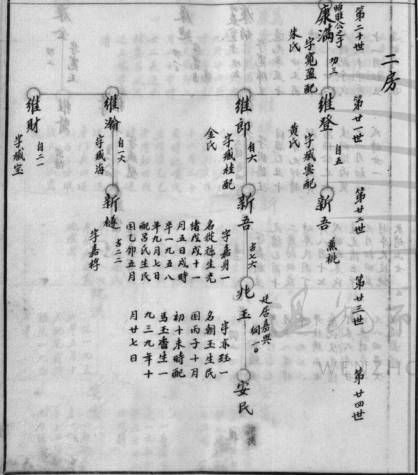 二房
第二十世
第廿一世
第廿二世
第廿三世
第廿四世
康滿
功三
字寬盈配
朱氏
維登
自五
字臧雲配
黄氏
新吾
兼祧
維郎
自六
字臧桂配
金氏
新吾
吉七六
字嘉勇
名筱德生光
緒戊戌十一
月五日戌時
卒一九五八
年九月七日
配呂氏生民
國乙卯五月
兆玉
徙居嘉興
字亦珏一
名朝玉生民
國丙子十月
初十未時配
馬玉香生一
九三九年十
月廿七日
安民
維瀚
自一六
字臧海
新樾
吉二二
字嘉梓
維財
自二一
字臧宝
WENZHO